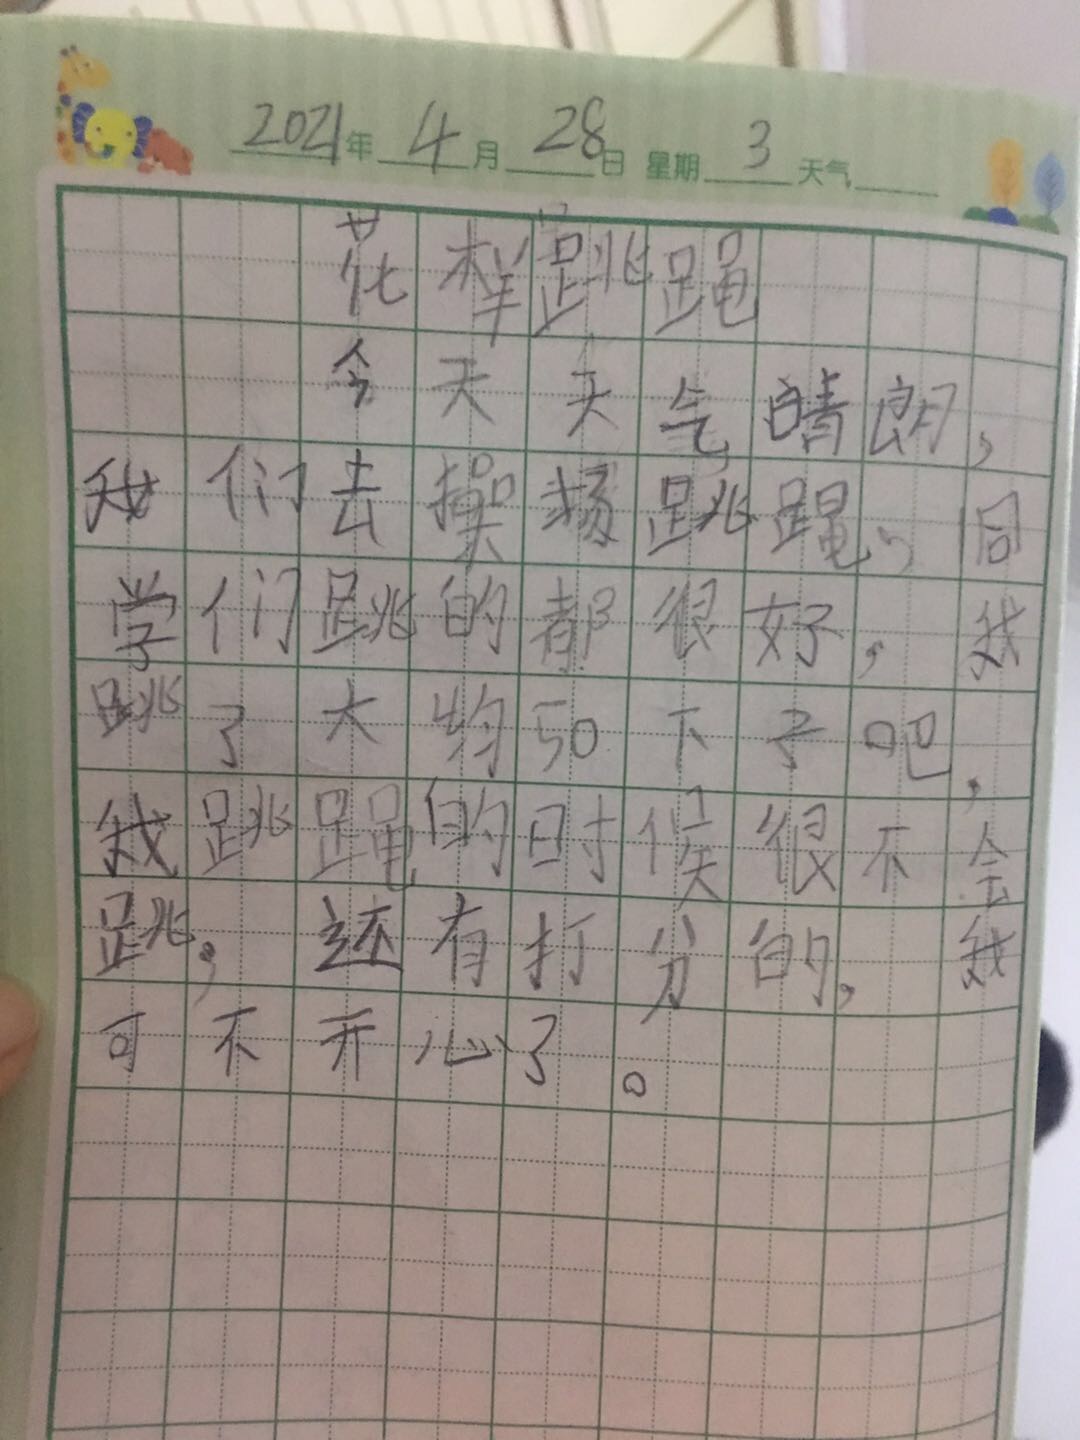 2021年4月28日 星期3 天气
花样跳绳
今天天气晴朗，
我们去操场跳绳，同
学们跳的都很好，我
跳了大约50下子吧，
我跳绳的时候很不会
跳，还有打分的，我
可不开心了。